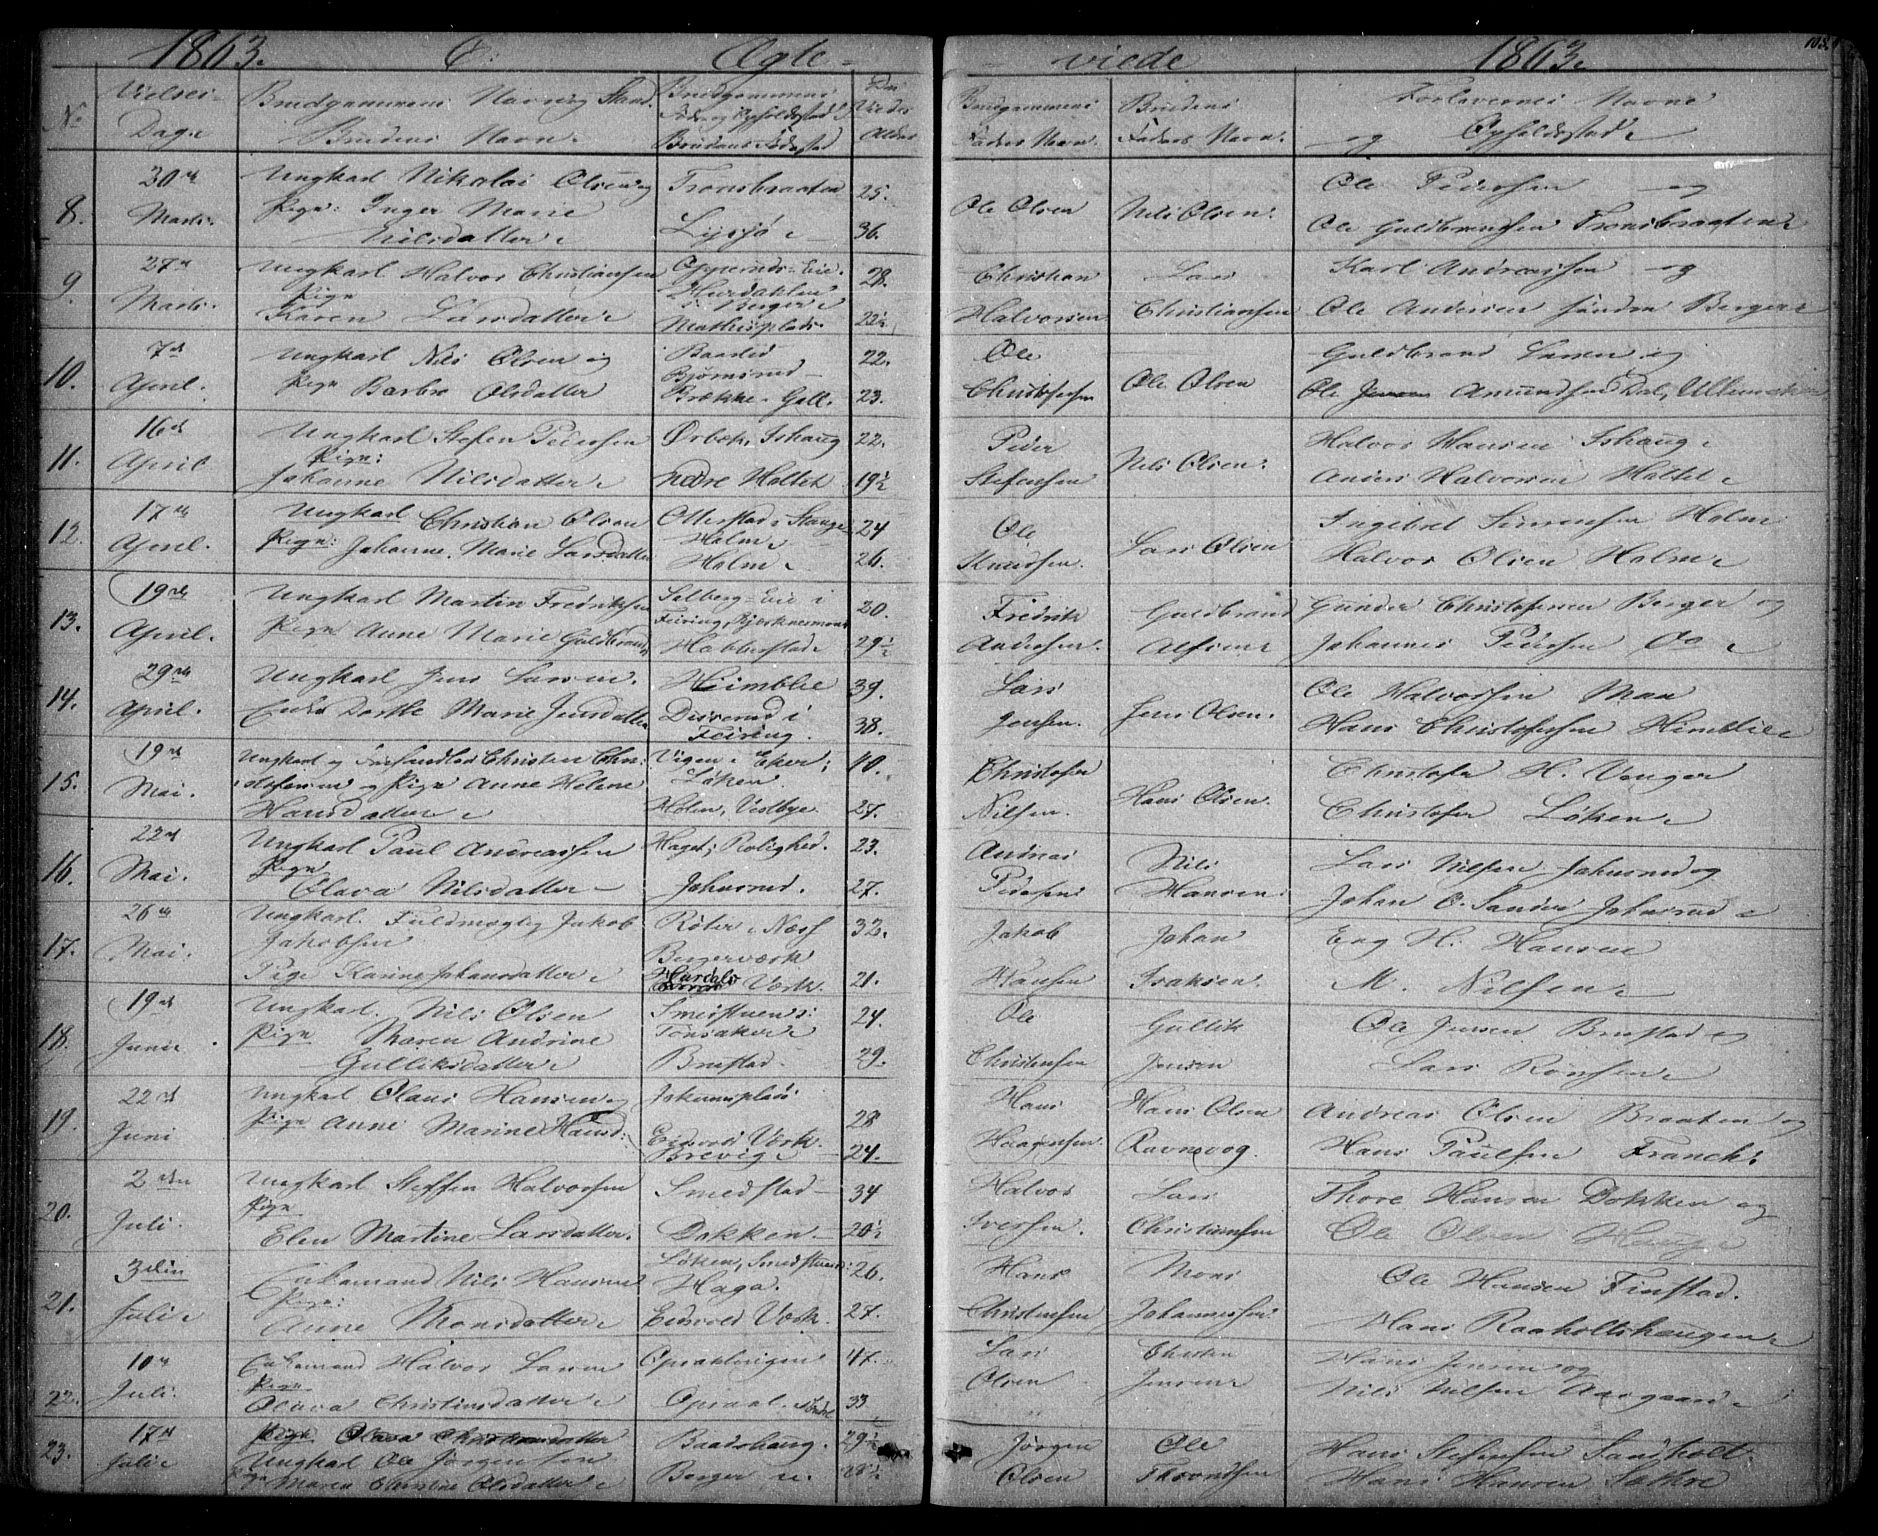 1863. C: Ægte- viede 1863. 108.
No Vielses- Dag. Brudgommens Navn og Stand. Brudens Navn. Brudgommens Føde og Opholdssted Brudens Fødested Den Viedes Alder Brudgommens Faders Navn. Brudens Faders Navn. Forlovernes Navne og Opholdssted.
8. 30te Marts. Ungkarl Nikolai Olsen og Pige: Inger Marie Nilsdatter Tronsbraaten Lysjø 25. 36. Ole Olsen Nils Olsen. Ole Pedersen og Ole Guldbrandsen Tronsbraaten
9. 27de Marts. Ungkarl Halvor Christiansen Pige Karen Larsdatter Berger Mathisplads. 28. 22½ Christian Halvorsen Lars Christiansen Karl Andreassen og Ole Andersen Søndre Berger
10. 7de April. Ungkarl Nils Olsen og Pige Barbro Olsdatter Baastad Bjørnsrud Brække 22. 23. Ole Christofersen Ole Olsen Guldbrand Larsen og Ole Amundsen Dal,
11. 16de April Ungkarl Stefen Pedersen Pige: Johanne Nilsdatter Ørbek, Ishaug Nedre Holtet 22. 19½ Peder Stefensen Nils Olsen. Halvor Hansen Ishaug Anders Halvorsen Holtet
12. 17de April. Ungkarl Christian Olsen Pige: Johanne Marie Larsdatter Ottestad, Stange Holm Holm 24 26. Ole Knudsen. Lars Olsen Ingebret Sørensen Holm Halvor Olsen Holm
13. 19de April. Ungkarl Martin Fredriksen Pige Anne Marie Guldbrandsd Solberg-Eie i Feiring, Habberstad 20. 29½ Fredrik Andersen. Guldbrand Alfsen Gunder Christofersen Berger og Johannes Pedersen
14. 29de April. Ungkarl Jens Larsen. Enke Dorthe Marie Jensdatter Heimblie Disserud i Feiring. 39. 38. Lars Jensen. Jens Olsen. Ole Halvorsen Hans Christofersen Himblie
15. 19de Mai. Ungkarl og Christen Christofersen og Pige Anne Helene Hansdatter Vigen i Eker; Løken Holen, Vestbye. 40. 27. Christofer Nilsen. Hans Olsen. Christofer H. Venger Christofer Løken
16. 22de Mai. Ungkarl Paul Andreassen Pige Olava Nilsdatter Haga; Rolighed. Johnsrud. 23. 27. Andreas Pedersen Nils Hansen Lars Nilsen Johnsrud og Johan O. Sander Johnsrud
17. 26de Mai. Ungkarl. Fuldmægtig Jakob Jakobsen Pige Karine Johansdatter Røter i Næss Bergerværk Hurdals Værk. 32. 21. Jakob Hansen Johan Isaksen. Eng H. Hansen M. Nilsen
18. 19de Junii Ungkarl. Nils Olsen Pige Maren Andrine Gulliksdatter Smedstuen: Tonsaker Brustad. 24. 29. Ole Christensen Gullik Jensen Ole Jensen Brustad og Lars
19. 22de Juni Ungkarl Olaus Hansen og Pige Anne Marine Hansd: Jokumsplads Eidsvold Værk Brevig 28 24. Hans Haagensen. Hans Olsen Ravnsvog. Andreas Olsen Braaten og Hans Paulsen Franck.
20. 2den Juli. Ungkarl Steffen Halvorsen Pige Elen Martine Larsdatter. Smedstad Dokken 34 20½ Halvor Iversen. Lars Christiansen Thore Hansen Dokken og Ole Olsen Haug
21. 3die Juli Enkemand Nils Hansen Pige: Anne Monsdatter Løken, Smedstuen Haga. Eidsvold Værk. 26. 27. Hans Christensen Mons Johannessen. Ole Hansen Finstad. Hans Raaholtshaugen
22. 10de Juli. Enkemand Halvor Larsen Pige Olava Christensdatter Opsalteigen Opsal Nordre 47. 33 Lars Olsen Christen Jensen Hans Jensen og Nils Nilsen Aasgaard
23. 17de Juli Pige Olava Christensdatter Ungkarl Ole Jørgensen Pige Maren Christine Olsdatter Baadshaug. Berger 29½ 28½ Jørgen Olsen Ole Thorvaldsen Hans Stefensen Sandholt. Hans Hansen